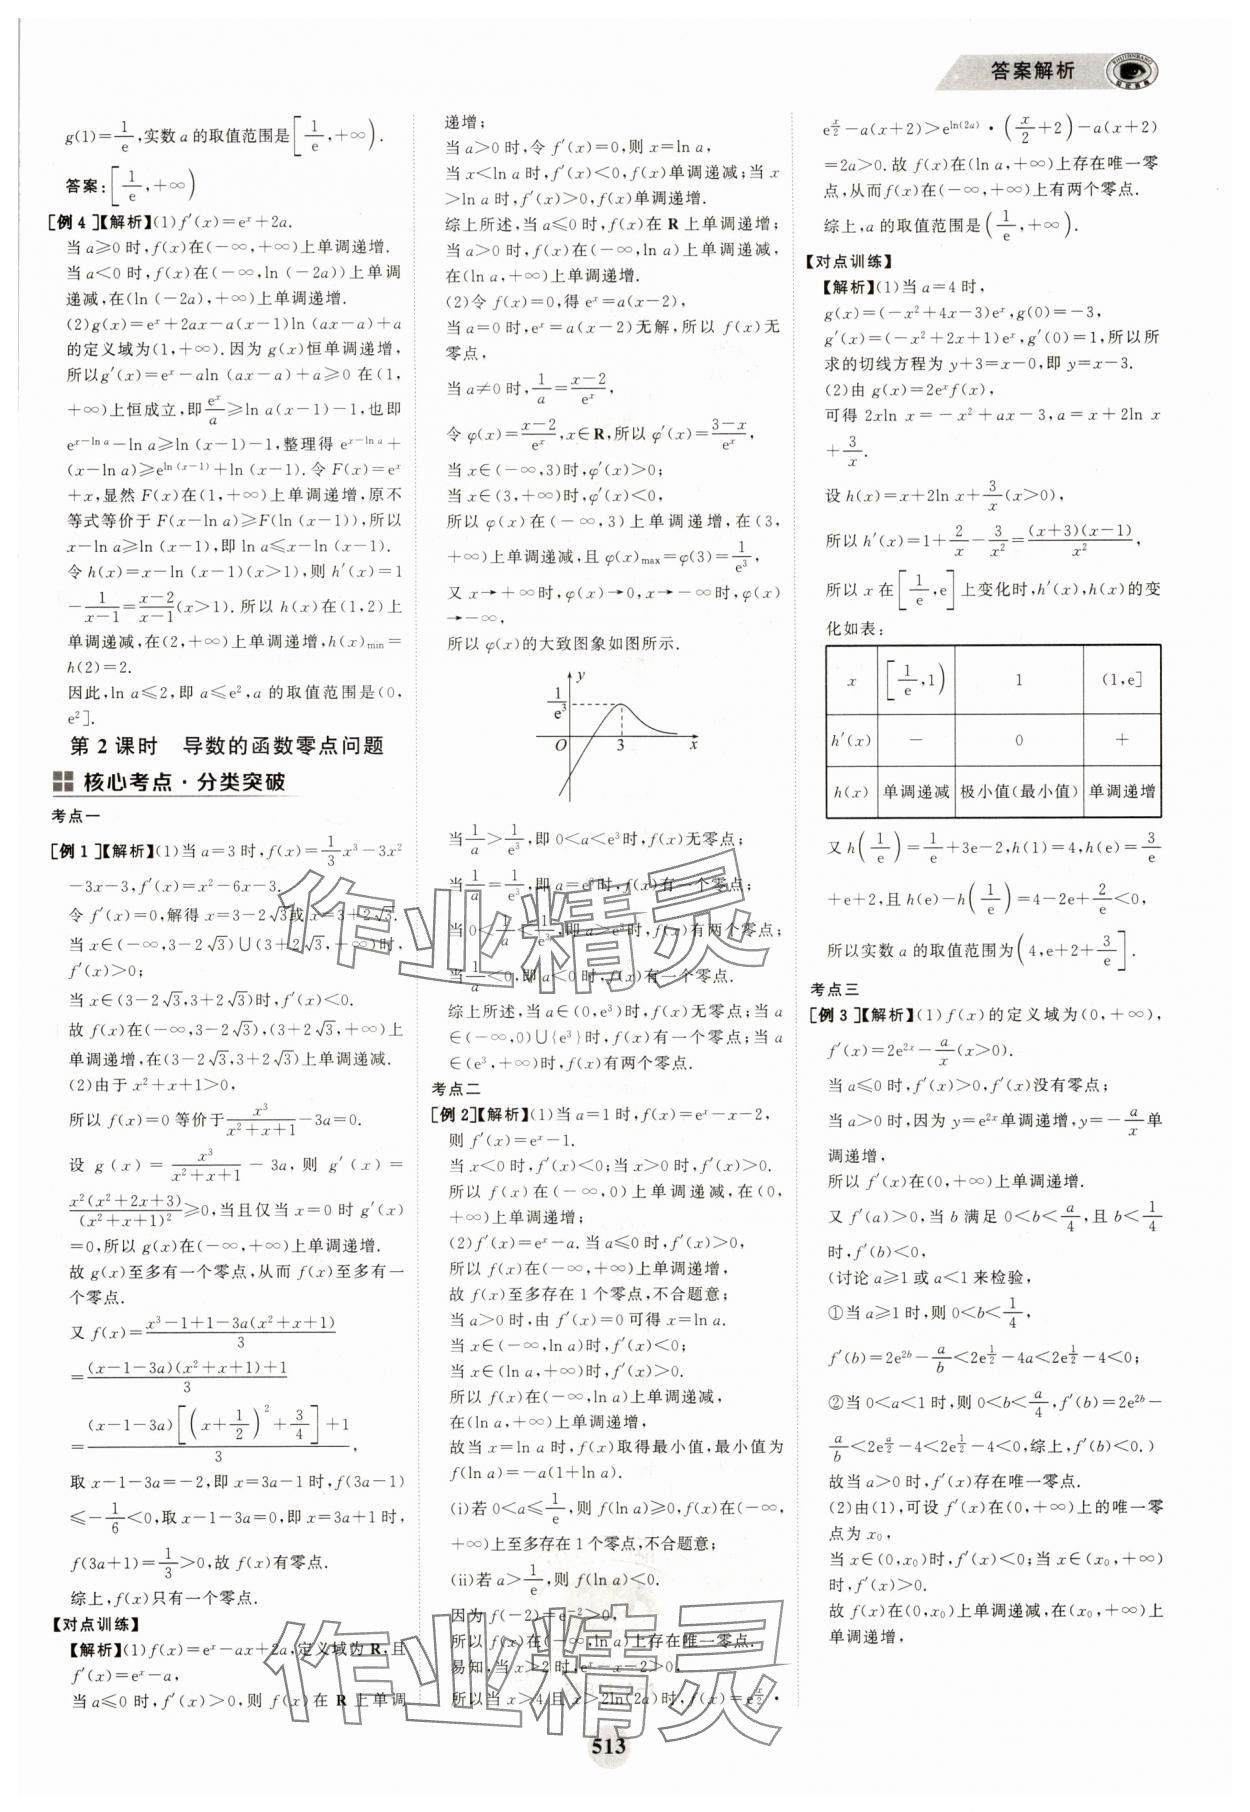 答案解析
g(1)=1/e,实数 a 的取值范围是[1/e,+∞).
答案:[1/e,+∞)
[例 4]【解析】(1)f′(x)=eˣ+2a.
当 a≥0 时,f(x)在(-∞,+∞)上单调递增.
当 a<0 时,f(x)在(-∞,ln (-2a))上单调
递减,在(ln (-2a),+∞)上单调递增.
(2)g(x)=eˣ+2ax-a(x-1)ln (ax-a)+a
的定义域为(1,+∞).因为 g(x)恒单调递增,
所以g′(x)=eˣ-aln (ax-a)+a≥0 在(1,
+∞)上恒成立,即eˣ/a≥ln a(x-1)-1,也即
e^(x-ln a)-ln a≥ln (x-1)-1,整理得 e^(x-ln a)+
(x-ln a)≥e^(ln (x-1))+ln (x-1).令 F(x)=eˣ
+x,显然 F(x)在(1,+∞)上单调递增,原不
等式等价于 F(x-ln a)≥F(ln (x-1)),所以
x-ln a≥ln (x-1),即 ln a≤x-ln (x-1).
令 h(x)=x-ln (x-1)(x>1),则 h′(x)=1
-1/(x-1)=(x-2)/(x-1)(x>1).所以 h(x)在(1,2)上
单调递减,在(2,+∞)上单调递增,h(x)min=
h(2)=2.
因此,ln a≤2,即 a≤e²,a 的取值范围是(0,
e²].
第 2 课时 导数的函数零点问题
核心考点·分类突破
考点一
[例 1]【解析】(1)当 a=3 时,f(x)=1/3x³-3x²
-3x-3,f′(x)=x²-6x-3.
令 f′(x)=0,解得 x=3-2√3或 x=3+2√3.
当 x∈(-∞,3-2√3)∪(3+2√3,+∞)时,
f′(x)>0;
当 x∈(3-2√3,3+2√3)时,f′(x)<0.
故 f(x)在(-∞,3-2√3),(3+2√3,+∞)上
单调递增,在(3-2√3,3+2√3)上单调递减.
(2)由于 x²+x+1>0,
所以 f(x)=0 等价于x³/(x²+x+1)-3a=0.
设 g(x)=x³/(x²+x+1)-3a,则 g′(x)=
x²(x²+2x+3)/(x²+x+1)²≥0,当且仅当 x=0 时 g′(x)
=0,所以 g(x)在(-∞,+∞)上单调递增.
故 g(x)至多有一个零点,从而 f(x)至多有一
个零点.
又 f(x)=(x³-1+1-3a(x²+x+1))/3
=((x-1-3a)(x²+x+1)+1)/3
=((x-1-3a)[(x+1/2)²+3/4]+1)/3,
取 x-1-3a=-2,即 x=3a-1 时,f(3a-1)
≤-1/6<0,取 x-1-3a=0,即 x=3a+1 时,
f(3a+1)=1/3>0,故 f(x)有零点.
综上,f(x)只有一个零点.
【对点训练】
【解析】(1)f(x)=eˣ-ax+2a,定义域为 R,且
f′(x)=eˣ-a,
当 a≤0 时,f′(x)>0,则 f(x)在 R 上单调
递增;
当 a>0 时,令 f′(x)=0,则 x=ln a,
当 x<ln a 时,f′(x)<0,f(x)单调递减;当 x
>ln a 时,f′(x)>0,f(x)单调递增.
综上所述,当 a≤0 时,f(x)在 R 上单调递增;
当 a>0 时,f(x)在(-∞,ln a)上单调递减,
在(ln a,+∞)上单调递增.
(2)令 f(x)=0,得 eˣ=a(x-2),
当 a=0 时,eˣ=a(x-2)无解,所以 f(x)无
零点,
当 a≠0 时,1/a=(x-2)/eˣ,
令 φ(x)=(x-2)/eˣ,x∈R,所以 φ′(x)=(3-x)/eˣ,
当 x∈(-∞,3)时,φ′(x)>0;
当 x∈(3,+∞)时,φ′(x)<0,
所以 φ(x)在(-∞,3)上单调递增,在(3,
+∞)上单调递减,且 φ(x)max=φ(3)=1/e³,
又 x→+∞时,φ(x)→0,x→-∞时,φ(x)
→-∞,
所以 φ(x)的大致图象如图所示.
y
1/e³
O 3 x
当1/a>1/e³,即 0<a<e³时,f(x)无零点;
当1/a=1/e³,即 a=e³时,f(x)有一个零点;
当 0<1/a<1/e³,即 a>e³时,f(x)有两个零点;
当1/a<0,即 a<0 时,f(x)有一个零点.
综上所述,当 a∈(0,e³)时,f(x)无零点;当 a
∈(-∞,0)∪{e³}时,f(x)有一个零点;当 a
∈(e³,+∞)时,f(x)有两个零点.
考点二
[例 2]【解析】(1)当 a=1 时,f(x)=eˣ-x-2,
则 f′(x)=eˣ-1.
当 x<0 时,f′(x)<0;当 x>0 时,f′(x)>0.
所以 f(x)在(-∞,0)上单调递减,在(0,
+∞)上单调递增;
(2)f′(x)=eˣ-a.当 a≤0 时,f′(x)>0,
所以 f(x)在(-∞,+∞)上单调递增,
故 f(x)至多存在 1 个零点,不合题意;
当 a>0 时,由 f′(x)=0 可得 x=ln a.
当 x∈(-∞,ln a)时,f′(x)<0;
当 x∈(ln a,+∞)时,f′(x)>0.
所以 f(x)在(-∞,ln a)上单调递减,
在(ln a,+∞)上单调递增,
故当 x=ln a 时,f(x)取得最小值,最小值为
f(ln a)=-a(1+ln a).
(i)若 0<a≤1/e,则 f(ln a)≥0,f(x)在(-∞,
+∞)上至多存在 1 个零点,不合题意;
(ii)若 a>1/e,则 f(ln a)<0.
因为 f(-2)=e⁻²>0,
所以 f(x)在(-∞,ln a)上存在唯一零点.
易知,当 x>2 时,eˣ-x-2>0,
所以当 x>4 且 x>2ln(2a)时,f(x)=e^(x/2)·
e^(x/2)-a(x+2)>e^(ln(2a))·(x/2+2)-a(x+2)
=2a>0.故 f(x)在(ln a,+∞)上存在唯一零
点,从而 f(x)在(-∞,+∞)上有两个零点.
综上,a 的取值范围是(1/e,+∞).
【对点训练】
【解析】(1)当 a=4 时,
g(x)=(-x²+4x-3)eˣ,g(0)=-3,
g′(x)=(-x²+2x+1)eˣ,g′(0)=1,所以所
求的切线方程为 y+3=x-0,即 y=x-3.
(2)由 g(x)=2eˣf(x),
可得 2xln x=-x²+ax-3,a=x+2ln x
+3/x.
设 h(x)=x+2ln x+3/x(x>0),
所以 h′(x)=1+2/x-3/x²=(x+3)(x-1)/x²,
所以 x 在[1/e,e]上变化时,h′(x),h(x)的变
化如表:
x [1/e,1) 1 (1,e]
h′(x) - 0 +
h(x) 单调递减 极小值(最小值) 单调递增
又 h(1/e)=1/e+3e-2,h(1)=4,h(e)=3/e
+e+2,且 h(e)-h(1/e)=4-2e+2/e<0,
所以实数 a 的取值范围为(4,e+2+3/e].
考点三
[例 3]【解析】(1)f(x)的定义域为(0,+∞),
f′(x)=2e²ˣ-a/x(x>0).
当 a≤0 时,f′(x)>0,f′(x)没有零点;
当 a>0 时,因为 y=e²ˣ单调递增,y=-a/x单
调递增,
所以 f′(x)在(0,+∞)上单调递增.
又 f′(a)>0,当 b 满足 0<b<a/4,且 b<1/4
时,f′(b)<0,
(讨论 a≥1 或 a<1 来检验,
①当 a≥1 时,则 0<b<1/4,
f′(b)=2e²ᵇ-a/b<2e^(1/2)-4a<2e^(1/2)-4<0;
②当 0<a<1 时,则 0<b<a/4,f′(b)=2e²ᵇ-
a/b<2e^(a/2)-4<2e^(1/2)-4<0,综上,f′(b)<0.)
故当 a>0 时,f′(x)存在唯一零点.
(2)由(1),可设 f′(x)在(0,+∞)上的唯一零
点为 x₀,
当 x∈(0,x₀)时,f′(x)<0;当 x∈(x₀,+∞)
时,f′(x)>0.
故 f(x)在(0,x₀)上单调递减,在(x₀,+∞)上
单调递增,
513
作业精灵
作业精灵